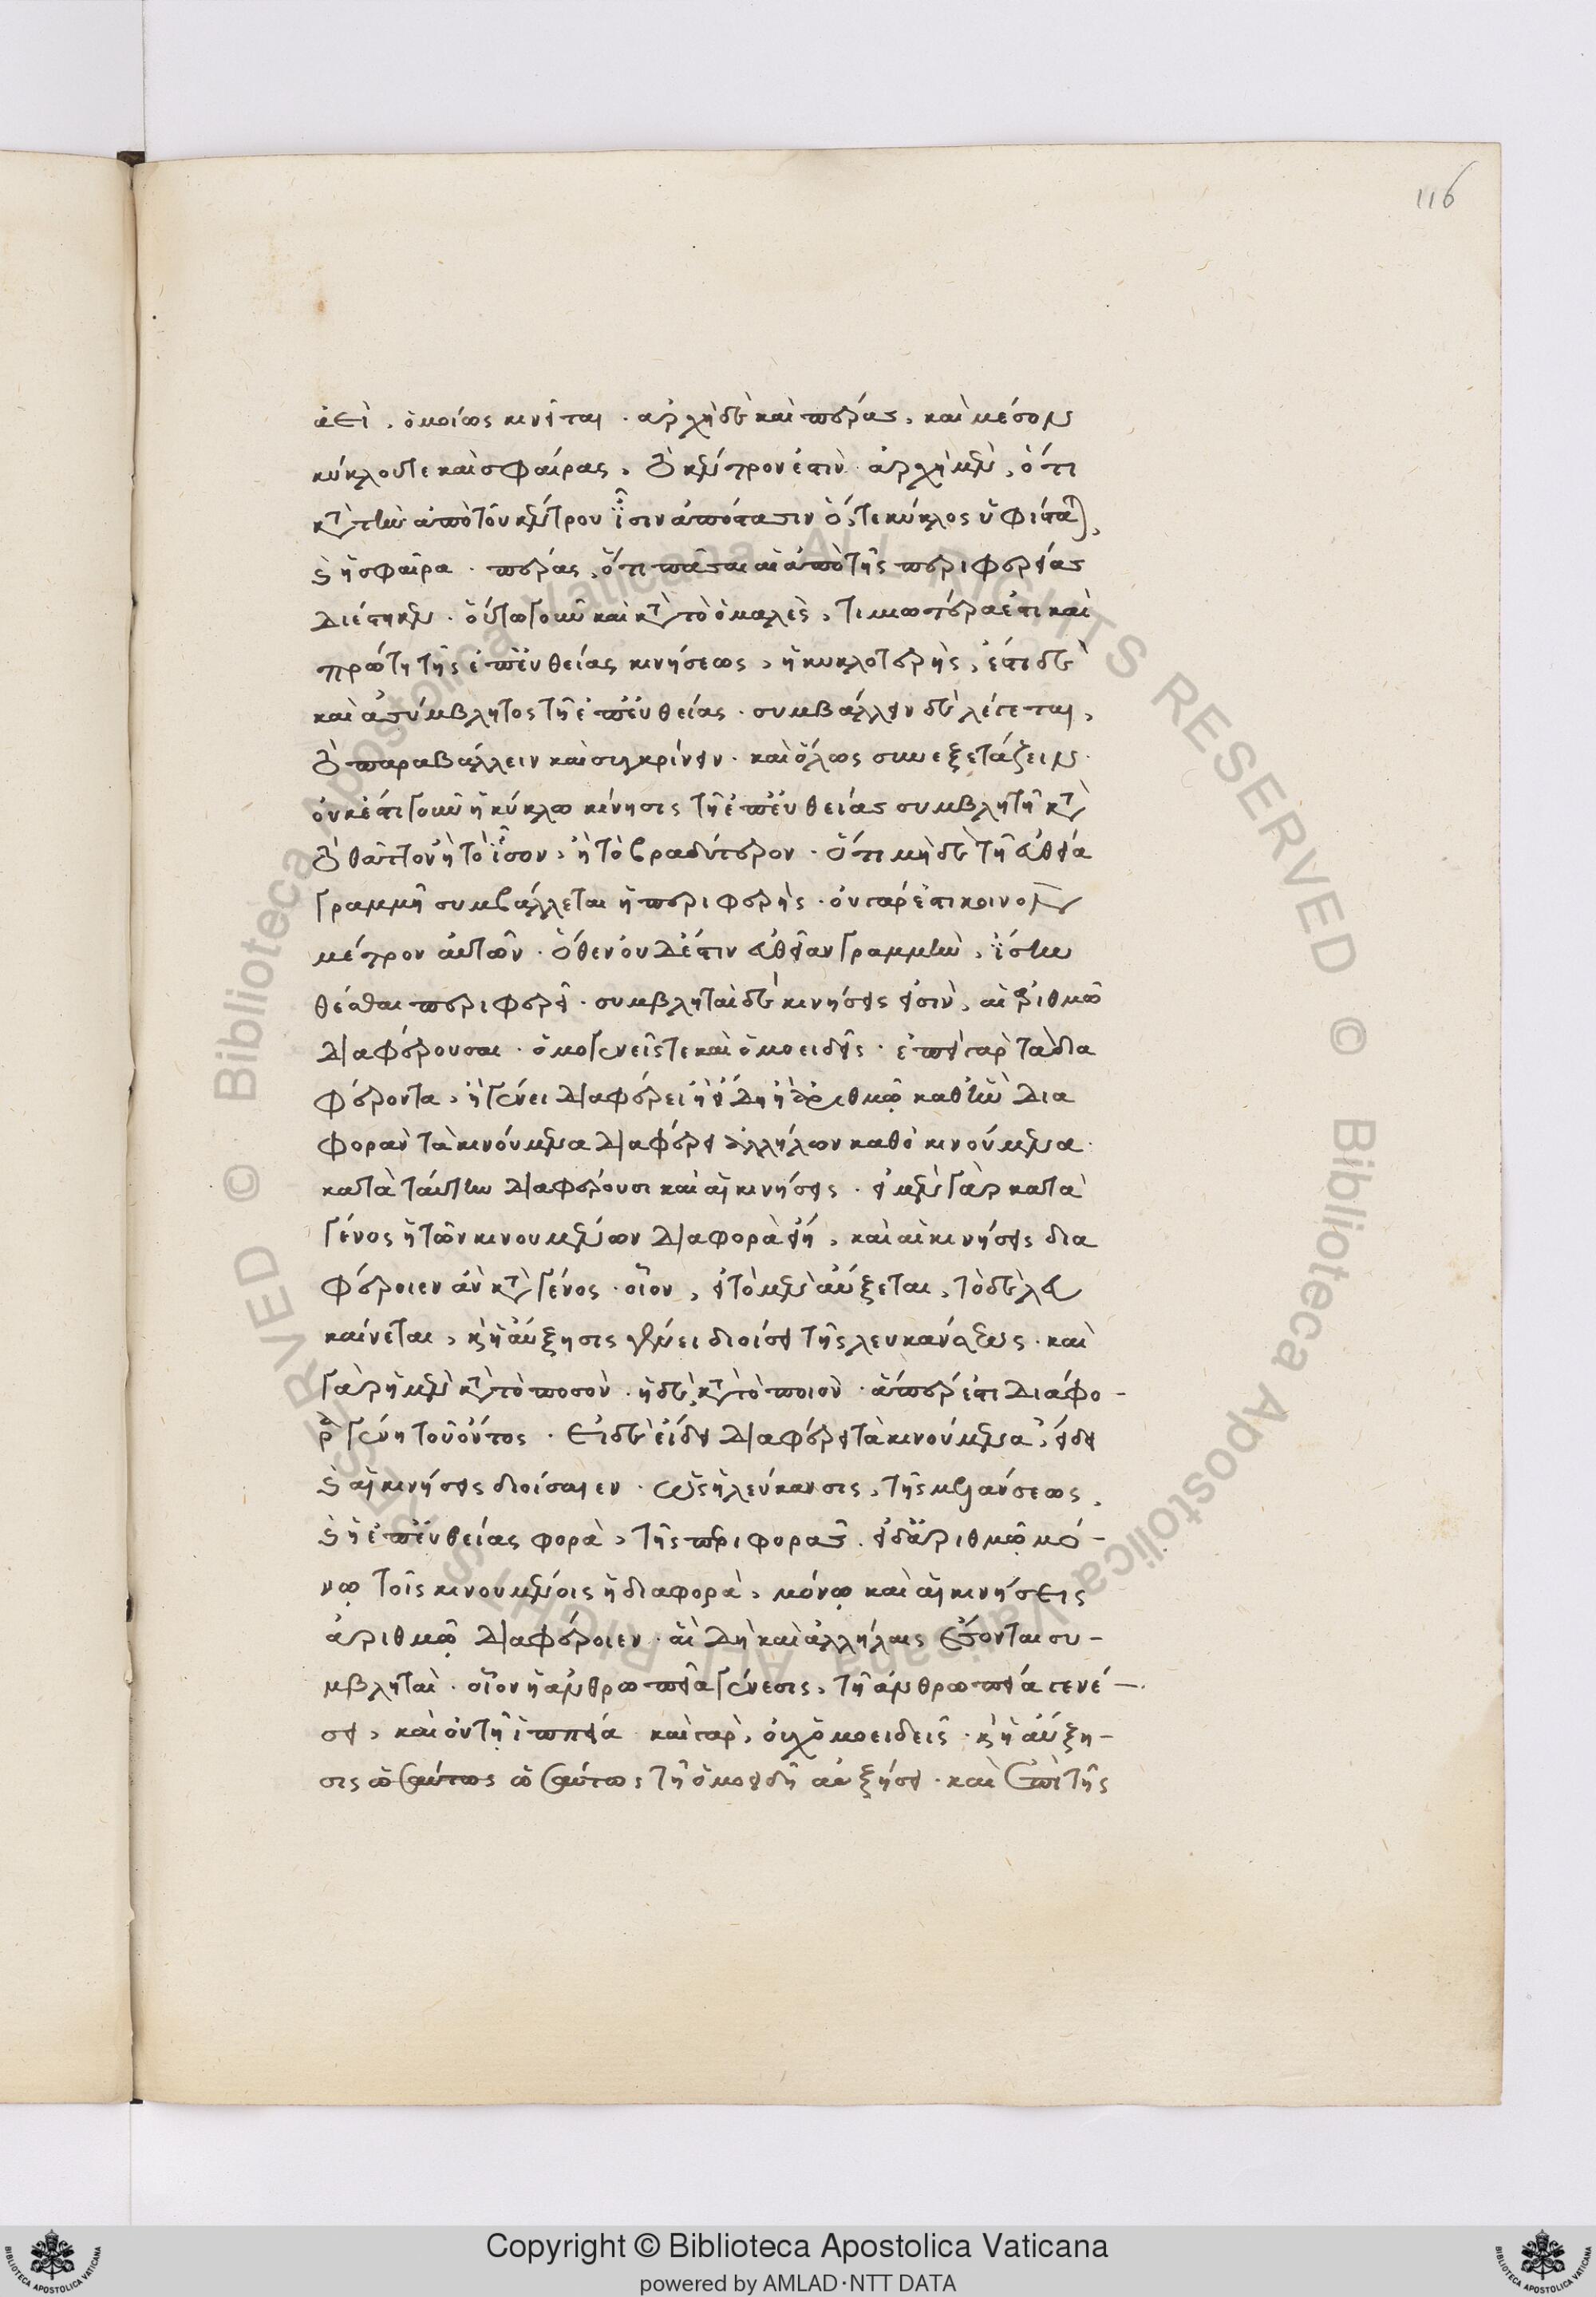 116
ἀεὶ, ὁμοίως κινεῖται· ἀρχὴ δὲ καὶ πέρας, καὶ μέσον
κύκλου τε καὶ σφαίρας, τὸ κέντρον ἐστὶν· ἀρχὴ μὲν, ὅτι
κατὰ τὴν ἀπὸ τοῦ κέντρου ἴσην ἀπόστασιν ὅ, τε κύκλος ὑφίσταται,
καὶ ἡ σφαῖρα· πέρας, ὅτι πᾶσαι αἱ ἀπὸ τῆς περιφερείας
διέστηκεν· οὕτω γοῦν καὶ κατὰ τὸ ὁμαλὲς, τιμιωτέρα ἐστὶ καὶ
πρώτη τῆς ἐπ' εὐθείας κινήσεως, ἡ κυκλοτερὴς, ἔστι δὲ
καὶ ἀσύμβλητος τῇ ἐπ' εὐθείας· συμβάλλειν δὲ λέγεται,
τὸ παραβάλλειν καὶ συγκρίνειν· καὶ ὅλως συνεξετάζειν·
οὐκ ἔστι γοῦν ἡ κύκλω κίνησις τῇ ἐπ' εὐθείας συμβλητὴ κατὰ
τὸ θᾶττον ἢ τὸ ἴσον, ἢ τὸ βραδύτερον· ὅτι μὴ δὲ τῇ εὐθεία
γραμμῇ συμβάλλεται ἡ περιφερὴς· οὐ γάρ ἐστι κοινον
μέτρον αὐτῶν· ὅθεν οὐδ' ἔστιν εὐθεῖαν γραμμὴν, ἴσην
θέσθαι περιφερεῖ· συμβληταὶ δὲ κινήσεις εἰσὶν, αἱ ἀριθμῶ
διαφέρουσαι· ὁμογενεῖς τε καὶ ὁμοειδεῖς· ἐπεὶ γὰρ τὰ δια
φέροντα, ἢ γένει διαφέρει ἢ εἴδη ἢ ἀριθμῷ καθ' ἣν δια
φορὰν τὰ κινούμενα διαφέρει ἀλλήλων καθὸ κινούμενα·
κατὰ ταύτην διαφέρουσι καὶ αἱ κινήσεις· εἰ μὲν γὰρ κατὰ
γένος ἡ τῶν κινουμένων διαφορὰ εἴη, καὶ αἱ κινήσεις δια
φέροιεν ἂν κατὰ γένος· οἷον, εἰ τὸ μὲν αὔξεται, τὸ δὲ λευ
καίνεται, καὶ ἡ αὔξησις γένει διοίσει τῆς λευκάνσεως· καὶ
γὰρ ἡ μὲν κατὰ τὸ ποσὸν· ἡ δὲ κατὰ τὸ ποιὸν· ἅπερ ἐστὶ διάφο-
ρα γένη τοῦ ὄντος· Εἰ δὲ εἴδει διαφέρει τὰ κινούμενα, εἴδει
καὶ αἱ κινήσεις διοίσαιεν· ὡς ἡ λεύκανσις, τῆς μελάνσεως,
καὶ ἡ ἐπ' εὐθείας φορὰ, τῆς περιφορᾶς· εἰ δ' ἀριθμῷ μό-
νῳ τοῖς κινουμένοις ἡ διαφορὰ, μόνῳ καὶ αἱ κινήσεις
ἀριθμῷ διαφέροιεν· αἳ δὴ καὶ ἀλλήλαις ἔσονται συ-
μβληταὶ· οἷον ἡ ἀνθρωπεία γένεσις, τῇ ἀνθρωπεία γενέ-
σει, καὶ οὐ τῇ ἱππεία καὶ γὰρ, οὐχ ὁμοειδεῖς· καὶ ἡ αὔξη-
σις ὡσαύτως ὡσαύτως τῇ ὁμοειδῆ αὐξήσει· καὶ ἐπὶ τῆς
Copyright © Biblioteca Apostolica Vaticana
powered by AMLAD·NTT DATA